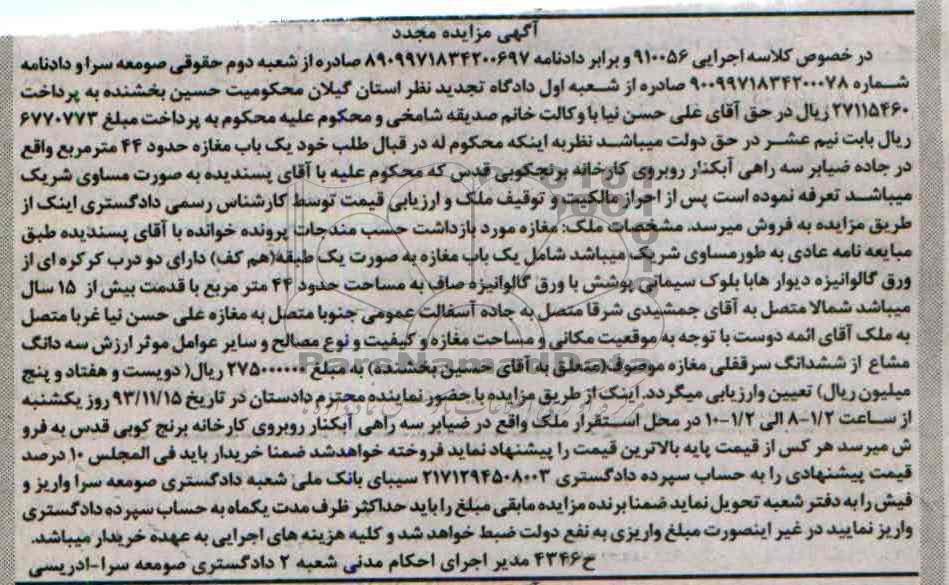 آگهی مزایده مجدد
در خصوص کلاسه اجرایی ۹۱۰۰۵۶ و برابر دادنامه ۸۹۰۹۹۷۱۸۳۴۲۰۰۶۹۷ صادره از شعبه دوم حقوقی صومعه سرا و دادنامه
شماره ۹۰۰۹۹۷۱۸۳۴۲۰۰۰۷۸ صادره از شعبه اول دادگاه تجدید نظر استان گیلان محکومیت حسین بخشنده به پرداخت
۲۷۱۱۵۴۶۰ ریال در حق آقای علی حسن نیا با وکالت خانم صدیقه شامخی و محکوم علیه محکوم به پرداخت مبلغ ۶۷۷۰۷۷۳
ریال بابت نیم عشر در حق دولت میباشد نظر به اینکه محکوم له در قبال طلب خود یک باب مغازه حدود ۴۴ مترمربع واقع
در جاده ضیابر سه راهی آبکنار روبروی کارخانه برنجکوبی قدس که محکوم علیه با آقای پسندیده به صورت مساوی شریک
میباشد تعرفه نموده است پس از احراز مالکیت و توقیف ملک و ارزیابی قیمت توسط کارشناس رسمی دادگستری اینک از
طریق مزایده به فروش میرسد. مشخصات ملک: مغازه مورد بازداشت حسب مندجات پرونده خوانده با آقای پسندیده طبق
مبایعه نامه عادی به طور مساوی شریک میباشد شامل یک باب مغازه به صورت یک طبقه(هم کف) دارای دو درب کرکره ای از
ورق گالوانیزه دیوار هابا بلوک سیمانی پوشش با ورق گالوانیزه صاف به مساحت حدود ۴۴ متر مربع با قدمت بیش از ۱۵ سال
میباشد شمالا متصل به آقای جمشیدی شرقا متصل به جاده آسفالت عمومی جنوبا متصل به مغازه علی حسن نیا غربا متصل
به ملک آقای ائمه دوست با توجه به موقعیت مکانی و مساحت مغازه و کیفیت و نوع مصالح و سایر عوامل موثر ارزش سه دانگ
مشاع از ششدانگ سرقفلی مغازه موصوف(متعلق به آقای حسین بخشنده) به مبلغ ۲۷۵۰۰۰۰۰۰ ریال( دویست و هفتاد و پنج
میلیون ریال) تعیین وارزیابی میگردد. اینک از طریق مزایده با حضور نماینده محتزم دادستان در تاریخ ۹۳/۱۱/۱۵ روز یکشنبه
از ساعت ۸-۱/۲ الی ۱۰-۱/۲ در محل استقرار ملک واقع در ضیابر سه راهی آبکنار روبروی کارخانه برنج کوبی قدس به فرو
ش میرسد هر کس از قیمت پایه بالاترین قیمت را پیشنهاد نماید فروخته خواهدشد ضمنا خریدار باید فی المجلس ۱۰ درصد
قیمت پیشنهادی را به حساب سپرده دادگستری ۲۱۷۱۲۹۴۵۰۸۰۰۳ سیبای بانک ملی شعبه دادگستری صومعه سرا واریز و
فیش را به دفتر شعبه تحویل نماید ضمنا برنده مزایده مابقی مبلغ را باید حداکثر ظرف مدت یکماه به حساب سپرده دادگستری
واریز نمایید در غیر اینصورت مبلغ واریزی به نفع دولت ضبط خواهد شد و کلیه هزینه های اجرایی به عهده خریدار میباشد.
ح۴۳۴۶ مدیر اجرای احکام مدنی شعبه ۲ دادگستری صومعه سرا-ادریسی
ParsNamadData